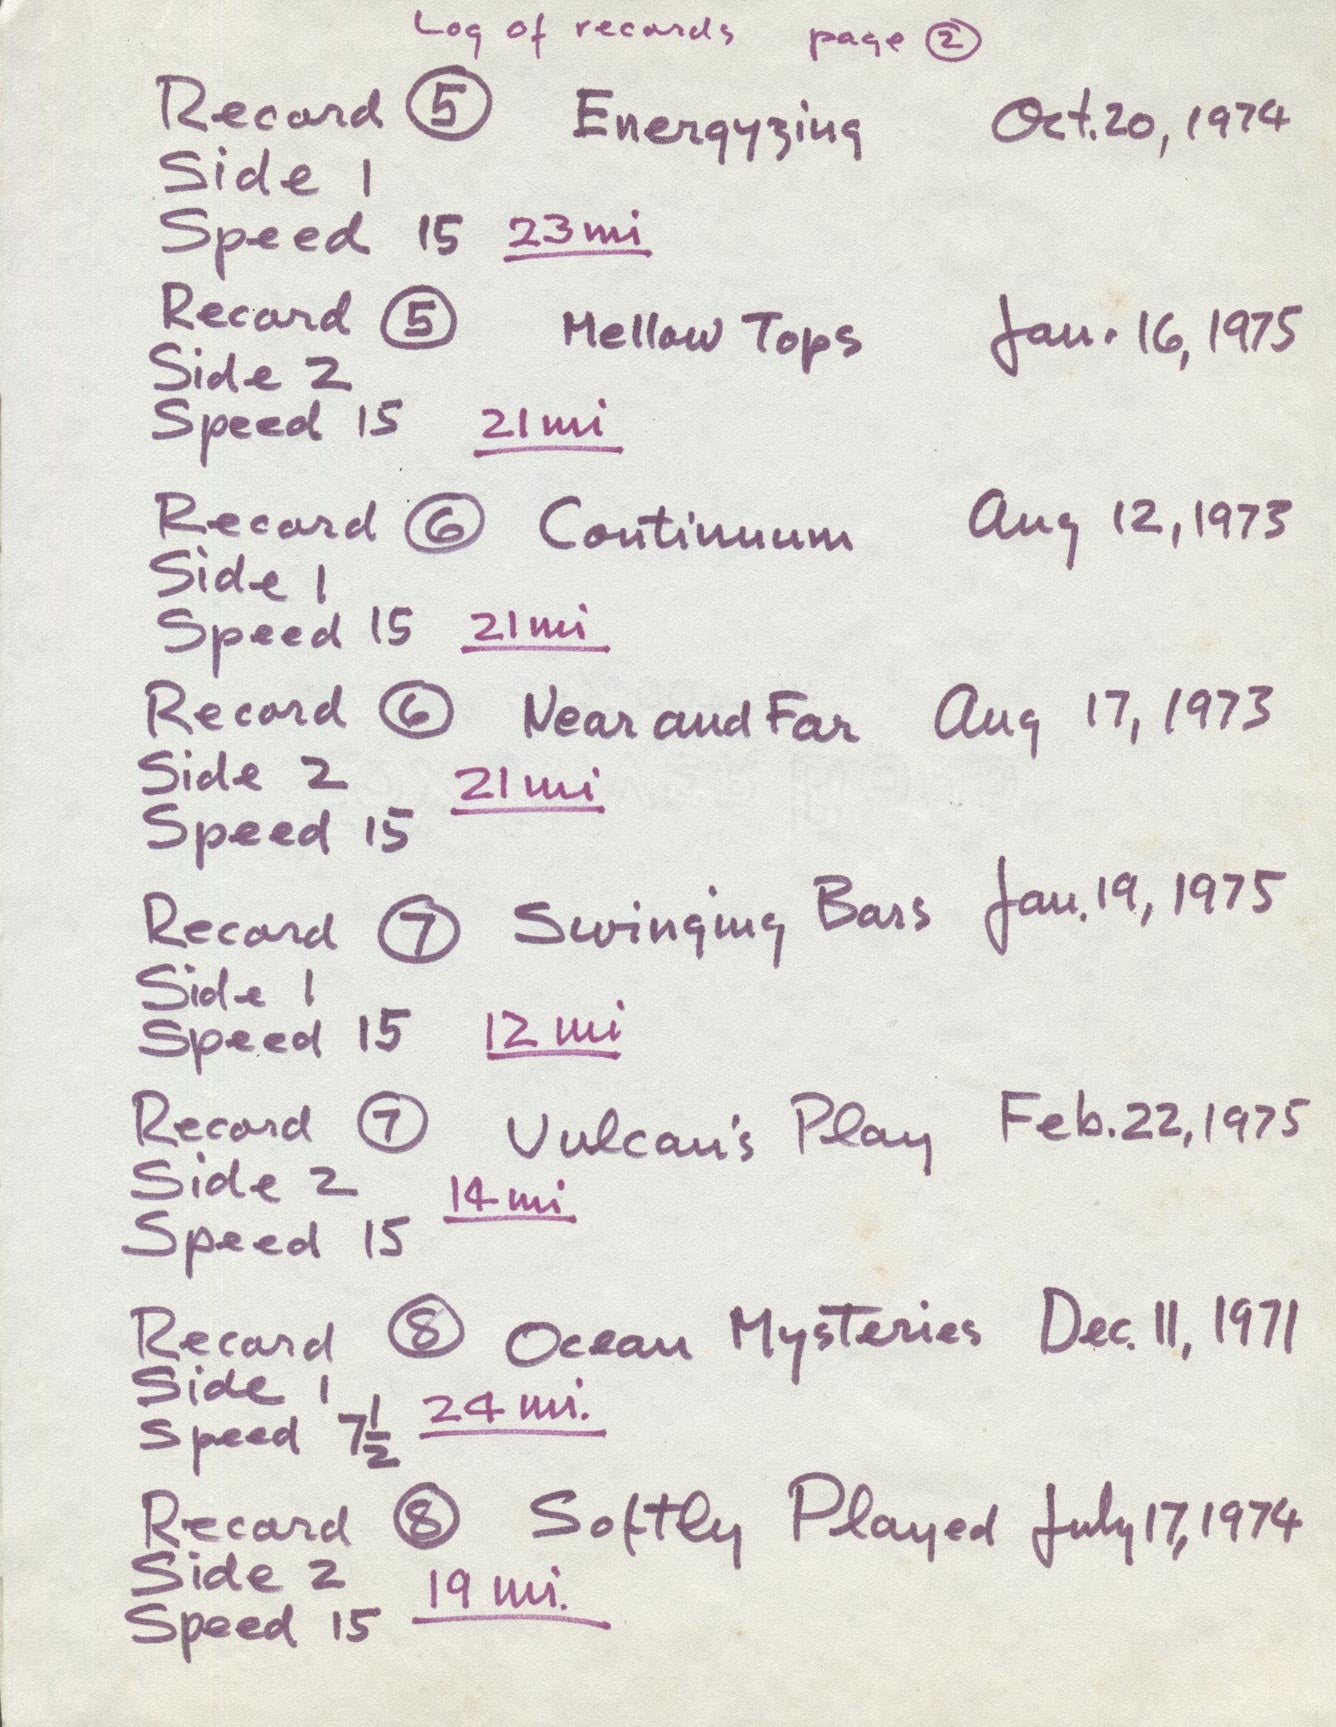 Log of records page 2
Record 5 Energyzing Oct. 20, 1974
Side 1
Speed 15 23 mi
Record 5 Mellow Tops Jan. 16, 1975
Side 2
Speed 15 21 mi
Record 6 Continuum Aug 12, 1973
Side 1
Speed 15 21 mi
Record 6 Near and Far Aug 17, 1973
Side 2 21 mi
Speed 15
Record 7 Swinging Bars Jan. 19, 1975
Side 1
Speed 15 12 mi
Record 7 Vulcan's Play Feb. 22, 1975
Side 2 14 mi
Speed 15
Record 8 Ocean Mysteries Dec. 11, 1971
Side 1
Speed 7 1/2 24 mi.
Record 8 Softly Played July 17, 1974
Side 2 19 mi.
Speed 15